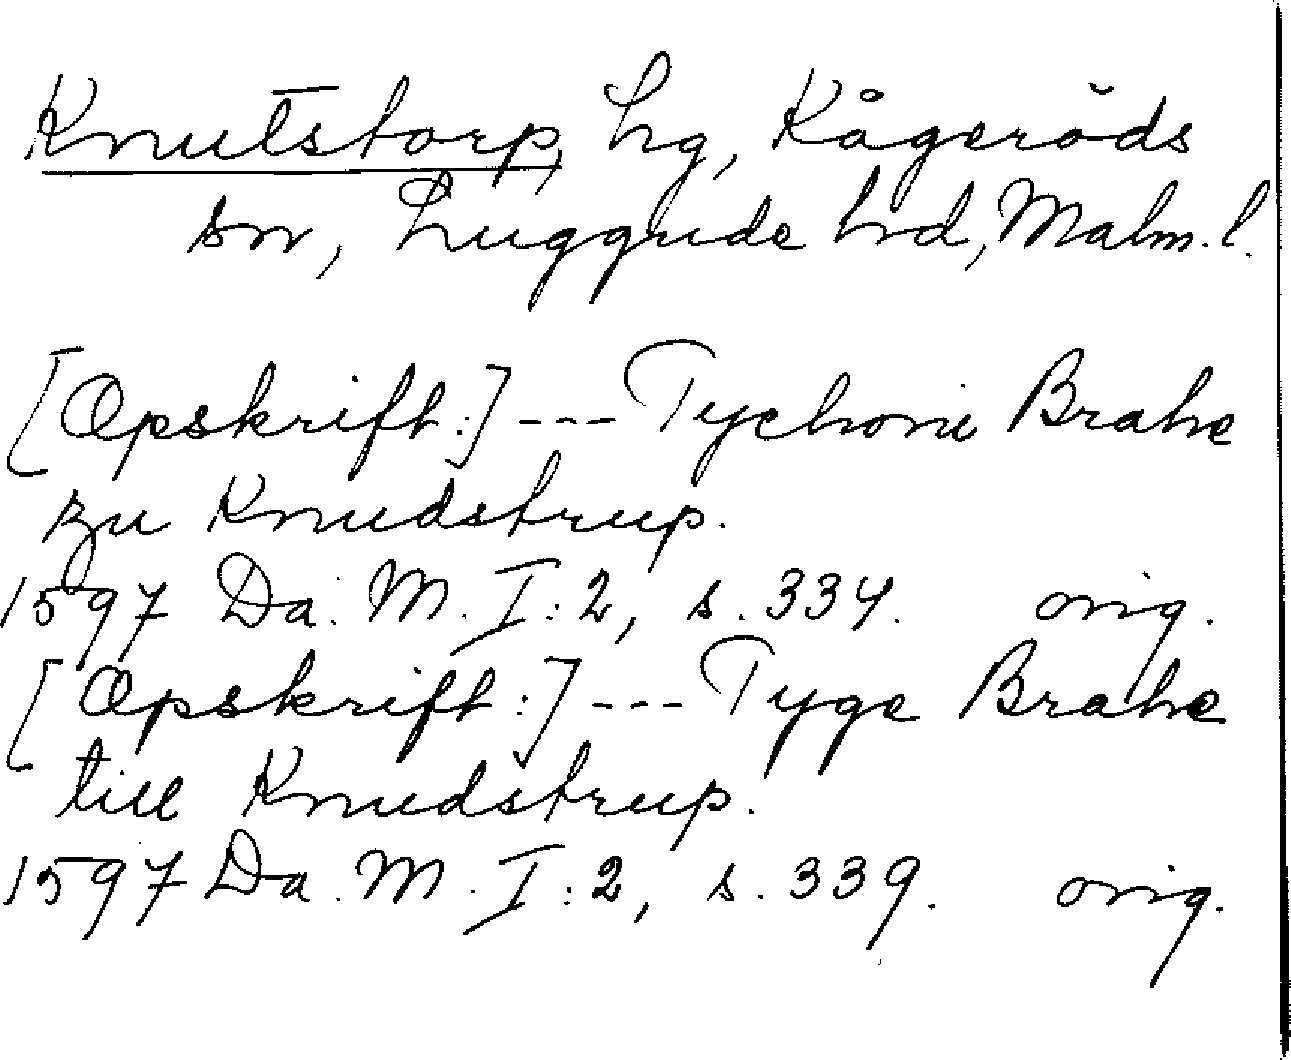 Knutstorp, hg, Kågeröds
sn, Luggude hd, Malm. l.
[Opskrift:] --- Tychoni Brahe
zu Knudstrup.
1597 Da. M. I:2, s. 334. orig.
[Opskrift:] --- Tyge Brahe
till Knudstrup.
1597 Da. M. I:2, s. 339. orig.